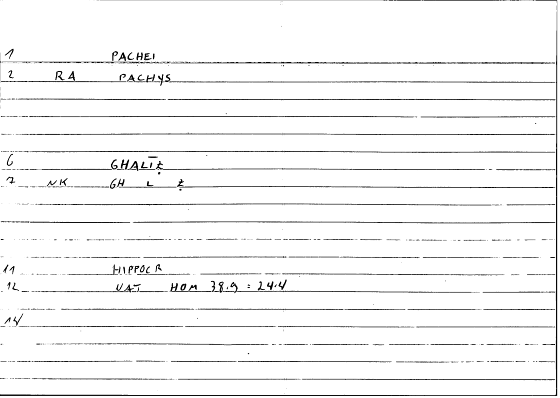 1 PACHEI
2 RA PACHYS
6 GHALĪẒ
7 NK GH L Ẓ
11 HIPPOCR
12 NAT HOM 38.9 = 24.4
14